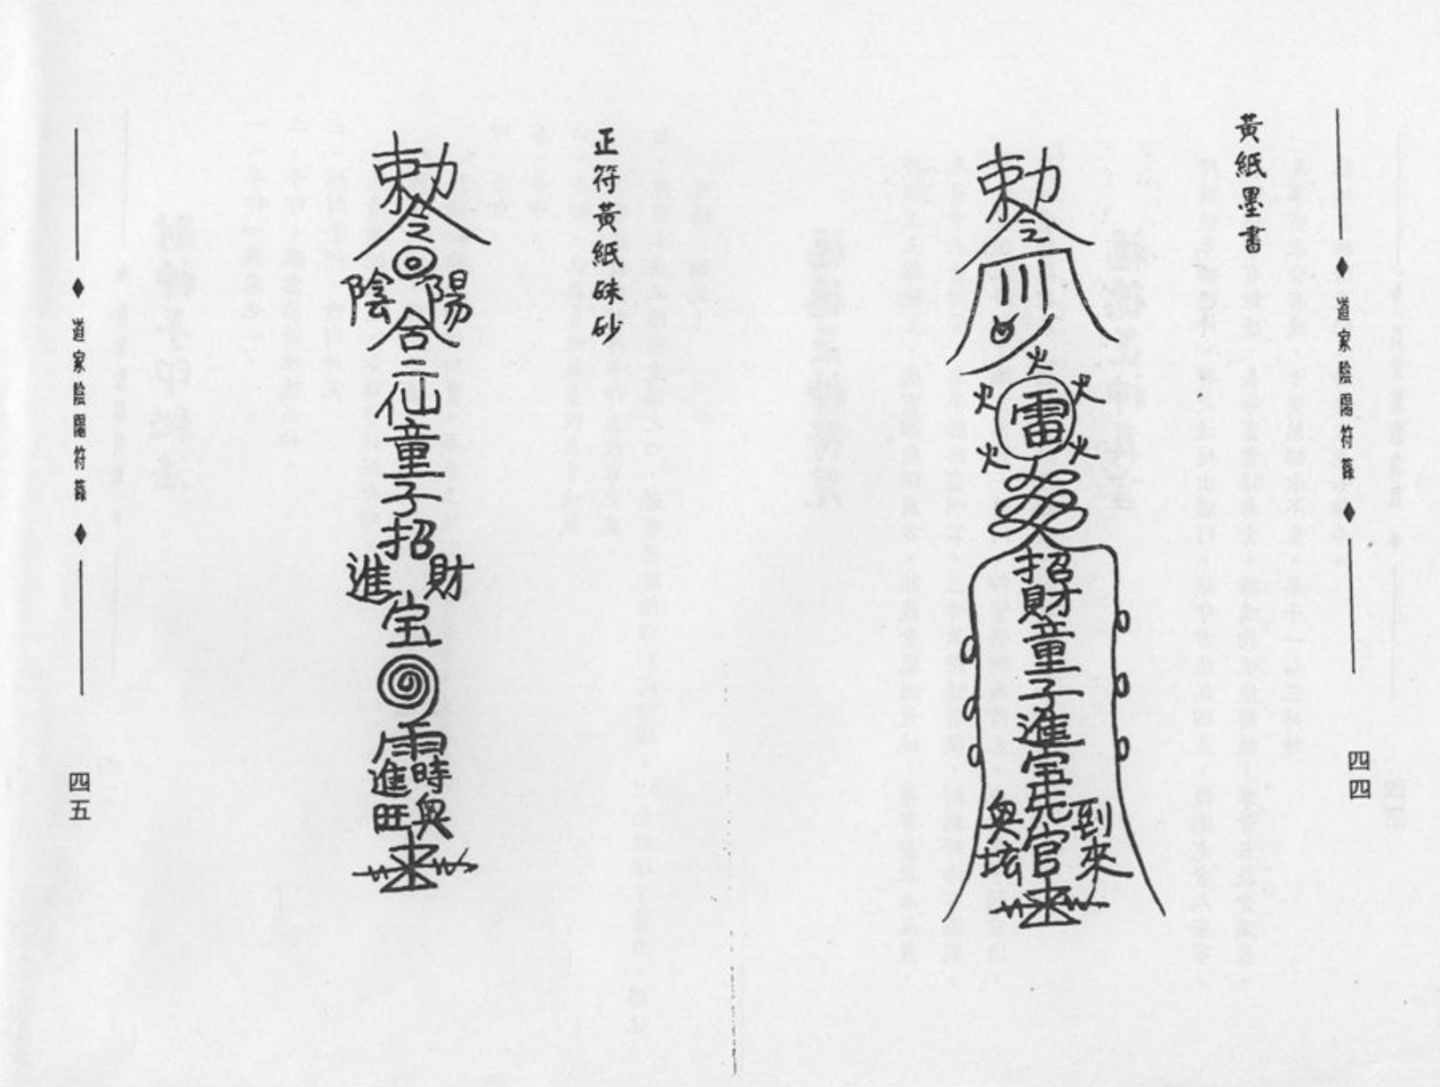 黃紙墨書
道家陰陽符籙
四四
勅
令
火
火 火
雷
火 火
招
財
童
子
進
宝
先
官
到
來
正符黃紙硃砂
勅
令
陰 陽
合
二
仙
童
子
招
進 財
宝
進 時
旺 與
道家陰陽符籙
四五